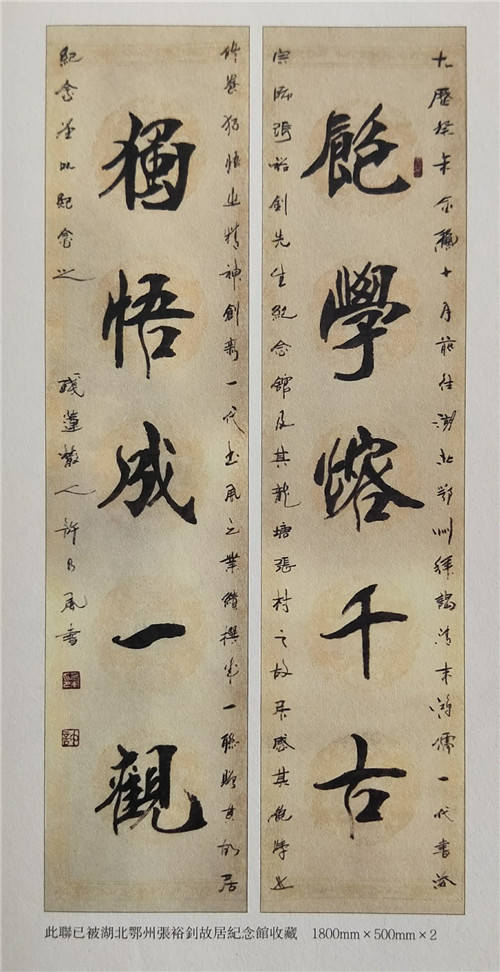 飽學熔千古
歷癸未金龝十月前往湖北鄂州拜謁清末鴻儒一代書法
宗師張裕釗先生紀念館及其龍塘張村之故居感其飽學之
獨悟成一觀
修養獨悟之精神創新一代書風之業績撰成一聯贈其故居
紀念並以紀念之
殘蓮散人許乃風書
此聯已被湖北鄂州張裕釗故居紀念館收藏 1800mm×500mm×2